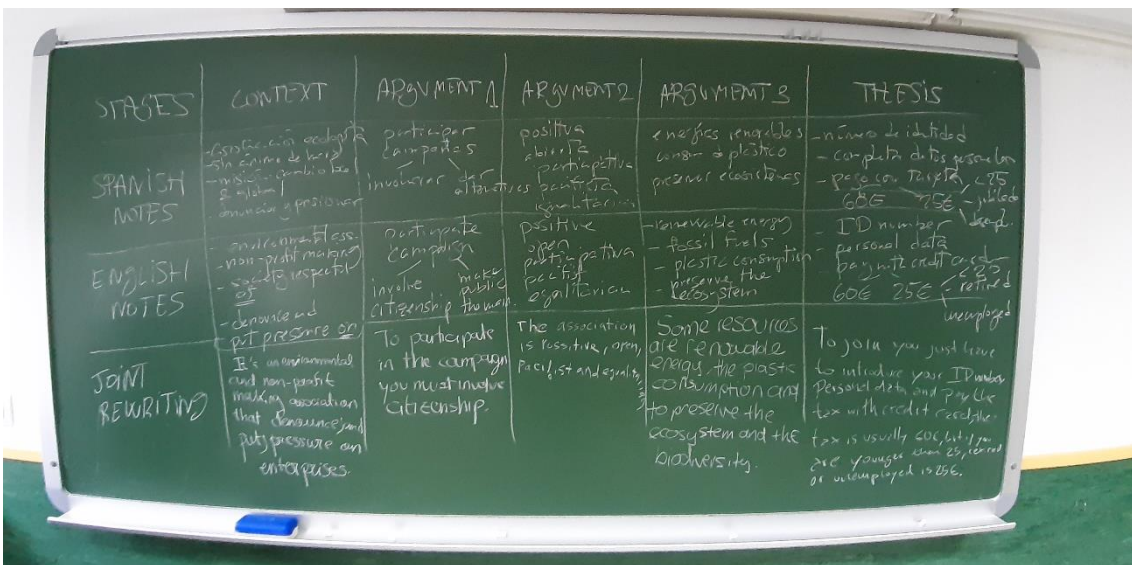 STAGES
CONTEXT
ARGUMENT 1
ARGUMENT 2
ARGUMENT 3
THESIS
SPANISH
NOTES
participar
campañas
involucrar
alternativas
positiva
abierta
participativa
pacifista
igualitaria
energías renovables
plástico
preservar ecosistemas
- número de identidad
- completar datos personales
- pago con tarjeta
<25
60€ 25€ - jubilado
ENGLISH
NOTES
- environmental ass-
- non-profit making
- society respectful
of
- denounce and
put pressure on
participate
campaign
involve
citizenship
make
public
positive
open
participativa
pacifist
egalitarian
- renewable energy
- fossil fuels
- plastic consumption
- preserve the
ecosystem
- ID number
- personal data
- pay with credit card
<25
60€ 25€ - retired
unemployed
JOINT
REWRITING
It's an environmental
and non-profit
making association
that denounce, and
puts pressure on
enterprises.
To participate
in the campaign
you must involve
citizenship.
The association
is possitive, open,
Pacifist and
Some resources
are renouable
energy, the plastic
consumption and
to preserve the
ecosystem and the
biodiversity.
To join you just have
to introduce your ID number
Personal data and pay the
tax with credit card, the
tax is usually 60€, but if you
are younger than 25, retired
or unemployed is 25€.